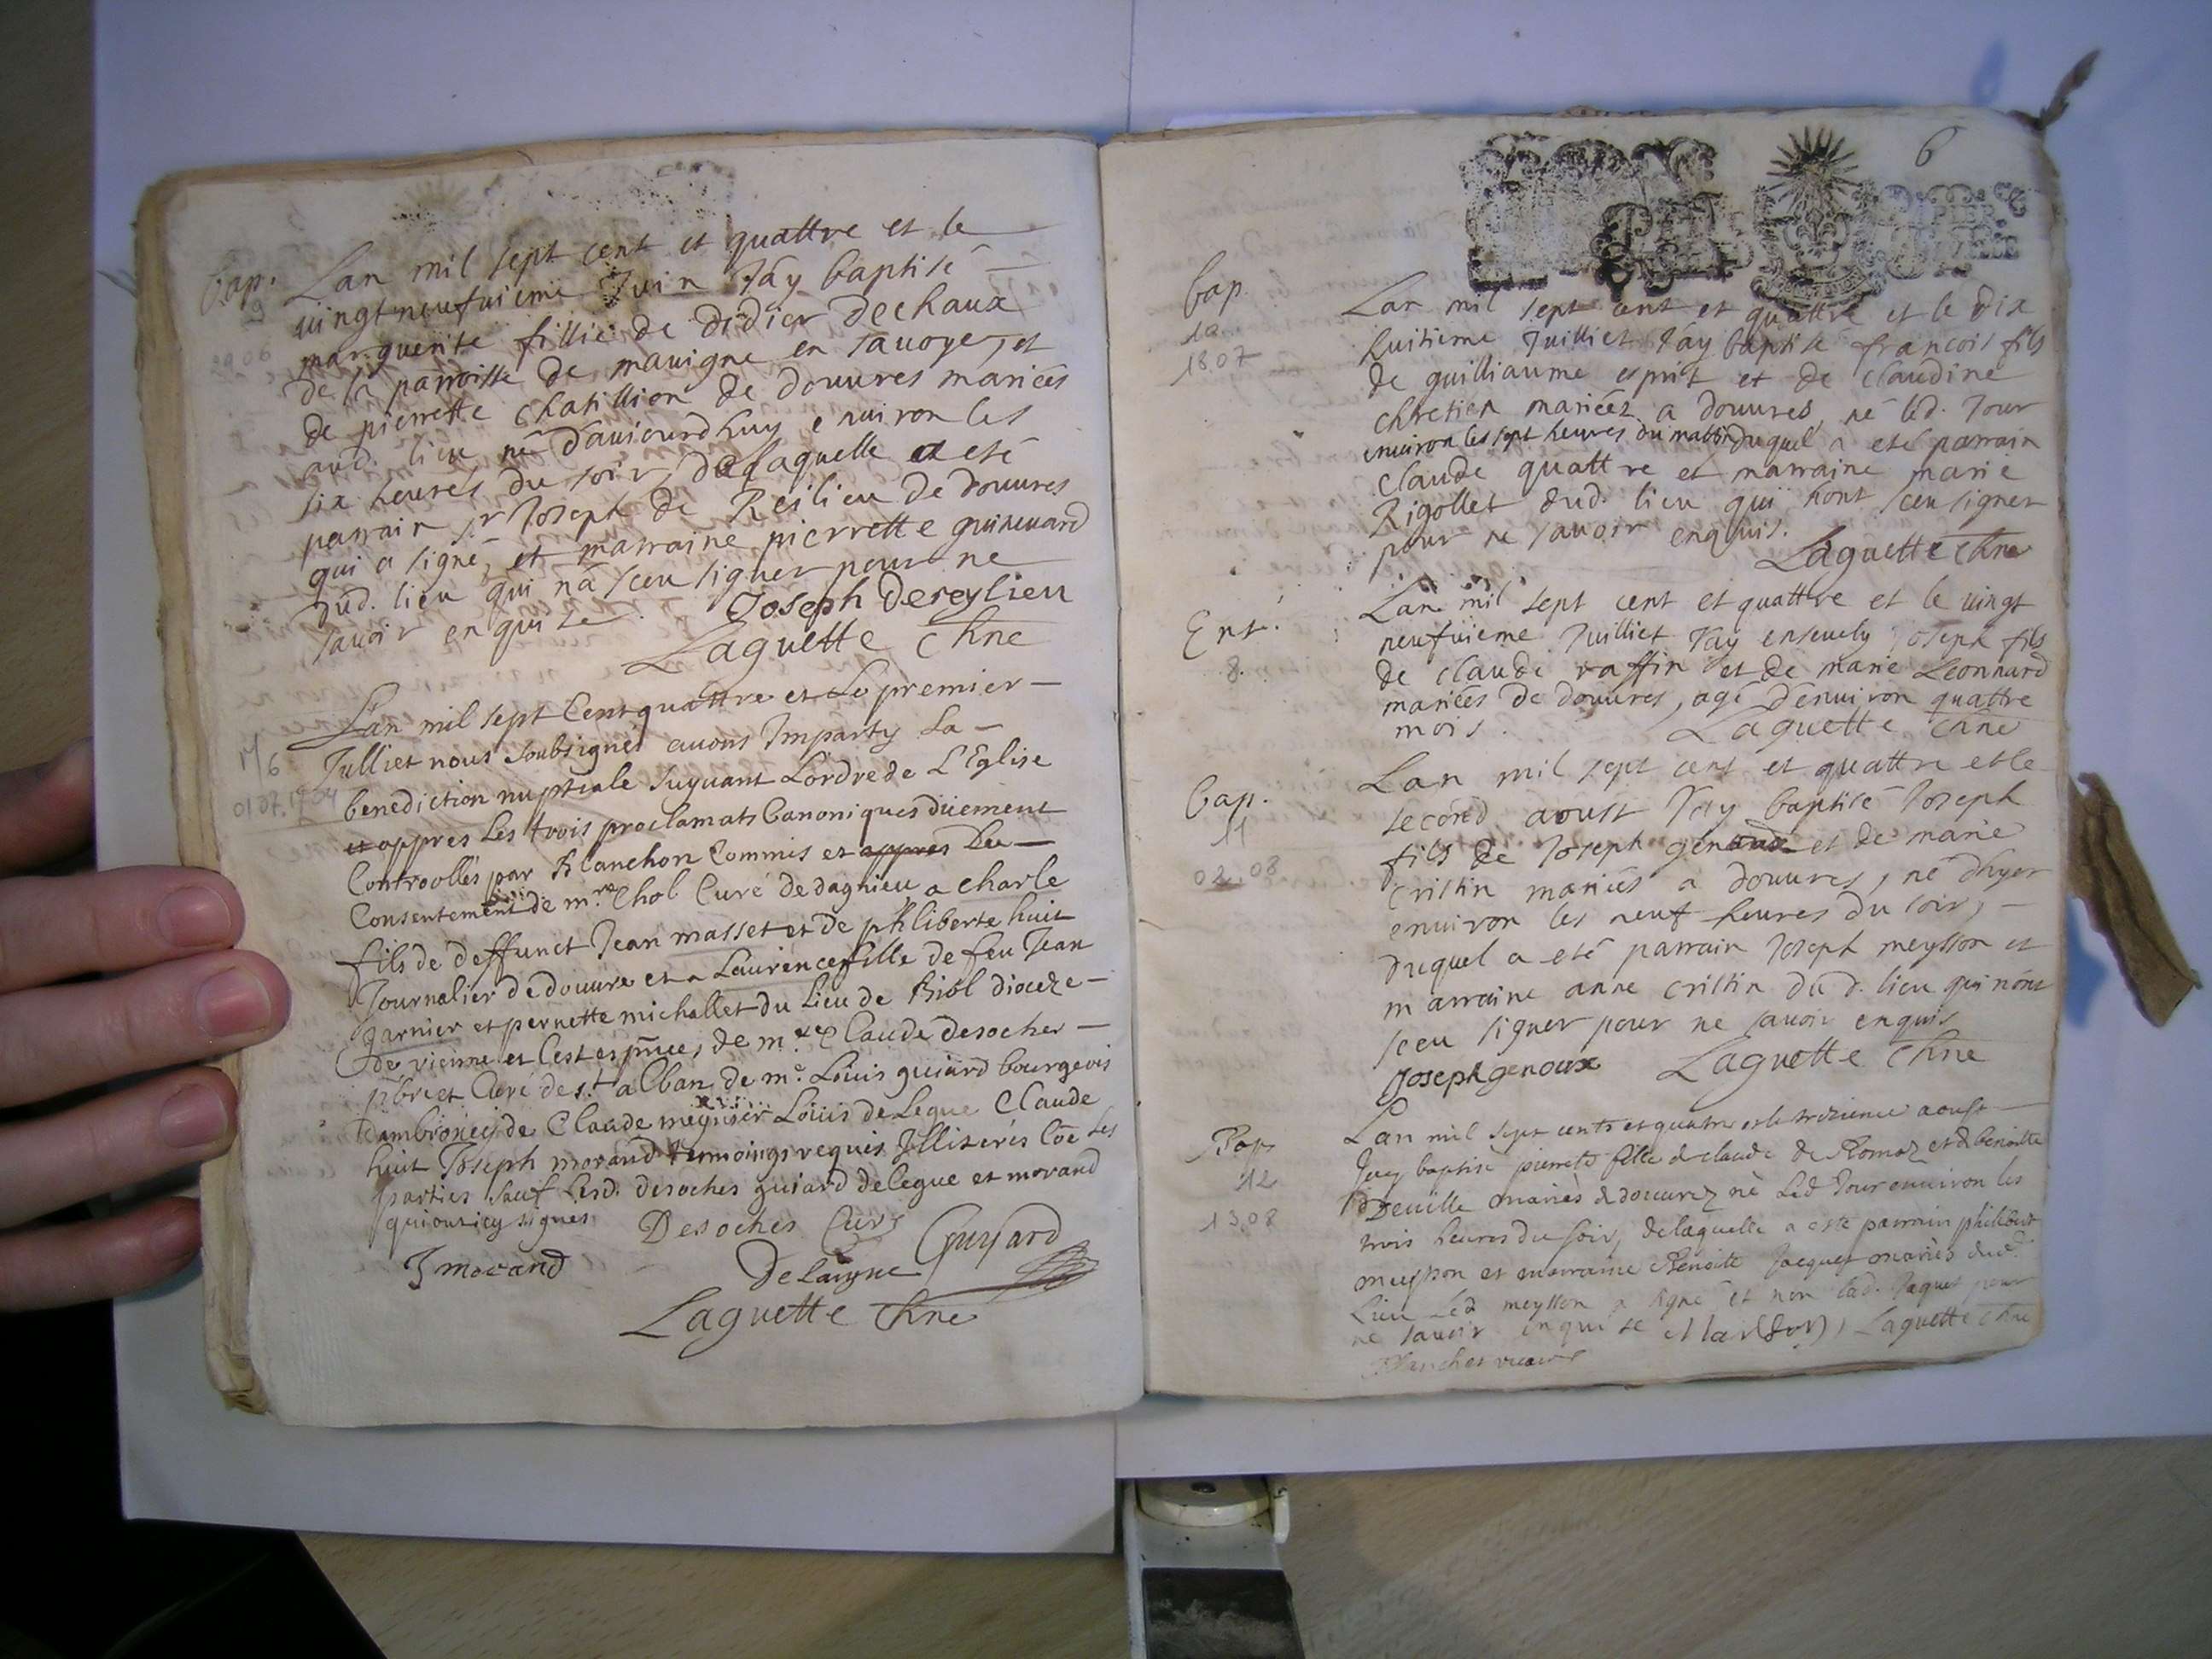 Bap.
9
2906
Lan mil sept cent et quattre et le
vingt neufvieme Juin J'ay baptisé
marguerite fillie de didier dechaux
de la parroisse de mauigne en savoye, et
de pierrette chatillion de douvres mariés
aud. lieu né d'aujourdhuy environ les
six heures du soir, de laquelle a eté
parrain sr Joseph de Reilieu de douvres
qui a signé, et marraine pierrette guinouard
dud. lieu qui n'a sceu signer pour ne
savoir enquise. Joseph dereylieu
Laguette Chne
M/6
0107.1704
L'an mil sept Cent quattre et Le premier
Julliet nous soubsignés avons Imparty La
benediction nuptiale suyvant L'ordre de L'Eglise
et appres Les trois proclamats Canoniques düement
Controollés par Blanchon Commis et appres Du
Consentement de mre Chol Curé de dagnieu a charle
fils de deffunct Jean masset et de philiberte huit
Journalier de douvre et a Laurence fille de feu Jean
garnier et pernette michallet du Lieu de Biol dioceze
de vienne et C'est es pnce, de mre Claude desoches
pbre et Curé de st alban, de me Louis guiard bourgeois
d'ambronei, de Claude meynier Louis deLegue Claude
huit Joseph morand temoings requis Illiterés Cõe Les
parties sauf Lesd. desoches guiard delegue et morand
qui ont icy signés Desoches Curé Guyard
J morand
Delaigue
Laguette Chne
6
bap.
10
1807
Lan mil sept cent et quattre et le dix
huitieme Juilliet J'ay baptisé francois fils
de guilliaume esprit et de claudine
chretien mariés a douvres, né led. Jour
environ les sept heures du mattin duquel a eté parrain
claude quattre et marraine marie
Rigollet dud. lieu qui n'ont sceu signer
pour ne savoir enquis.
Laguette Chne
Ent.
8.
Lan mil sept cent et quattre et le vingt
neufvieme Juilliet J'ay ensevely Joseph fils
de claude raffin et de marie Leonnard
mariés de douvres, agé d'environ quattre
mois. Laguette Chne
bap.
11
02.08
Lan mil sept cent et quattre et le
second aoust J'ay baptisé Joseph
fils de Joseph genoux et de marie
cristin mariés a douvres, né d'hyer
environ les neuf heures du soir,
duquel a eté parrain Joseph meysson et
marraine anne cristin du d. lieu qui n'ont
sceu signer pour ne savoir enquis
Joseph genoux Laguette Chne
Bap
12
13.08
Lan mil sept cents et quatre et le trezieme aoust
Jay baptisé pierrette fille de claude de Romaz et de benoitte
Deville mariés de douvrez né Led Jour environ les
trois heures du soir, delaquelle a esté parrain philibert
meysson et marraine Benoite Jacquet mariés dud.
Lieu Led meysson a signé et non lad. Jaquet pour
ne savoir enquise Laguette Chne